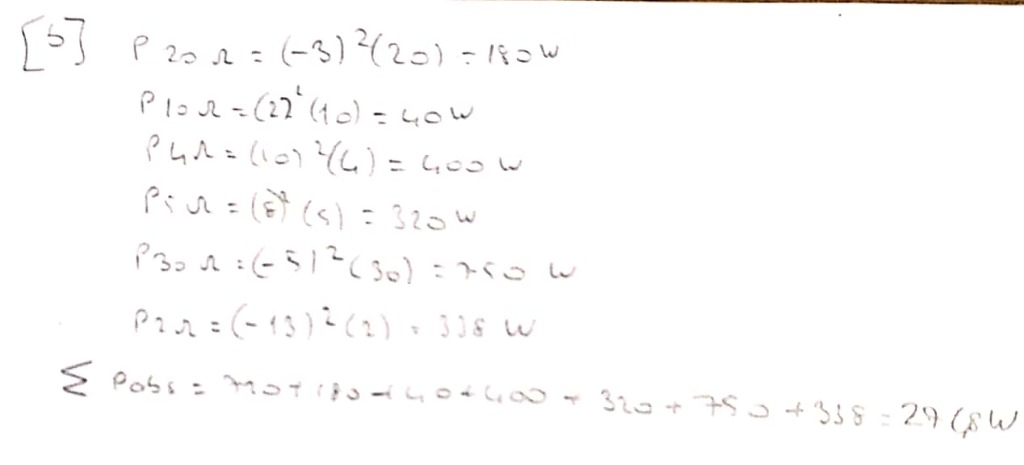 [b] P 20 Ω = (-3)²(20) = 180 W
P 10 Ω = (2)²(10) = 40 W
P 4 Ω = (10)²(4) = 400 W
P 5 Ω = (8)²(5) = 320 W
P 30 Ω = (-5)²(30) = 750 W
P 2 Ω = (-13)²(2) = 338 W
Σ Pabs = 720 + 180 + 40 + 400 + 320 + 750 + 338 = 2748 W